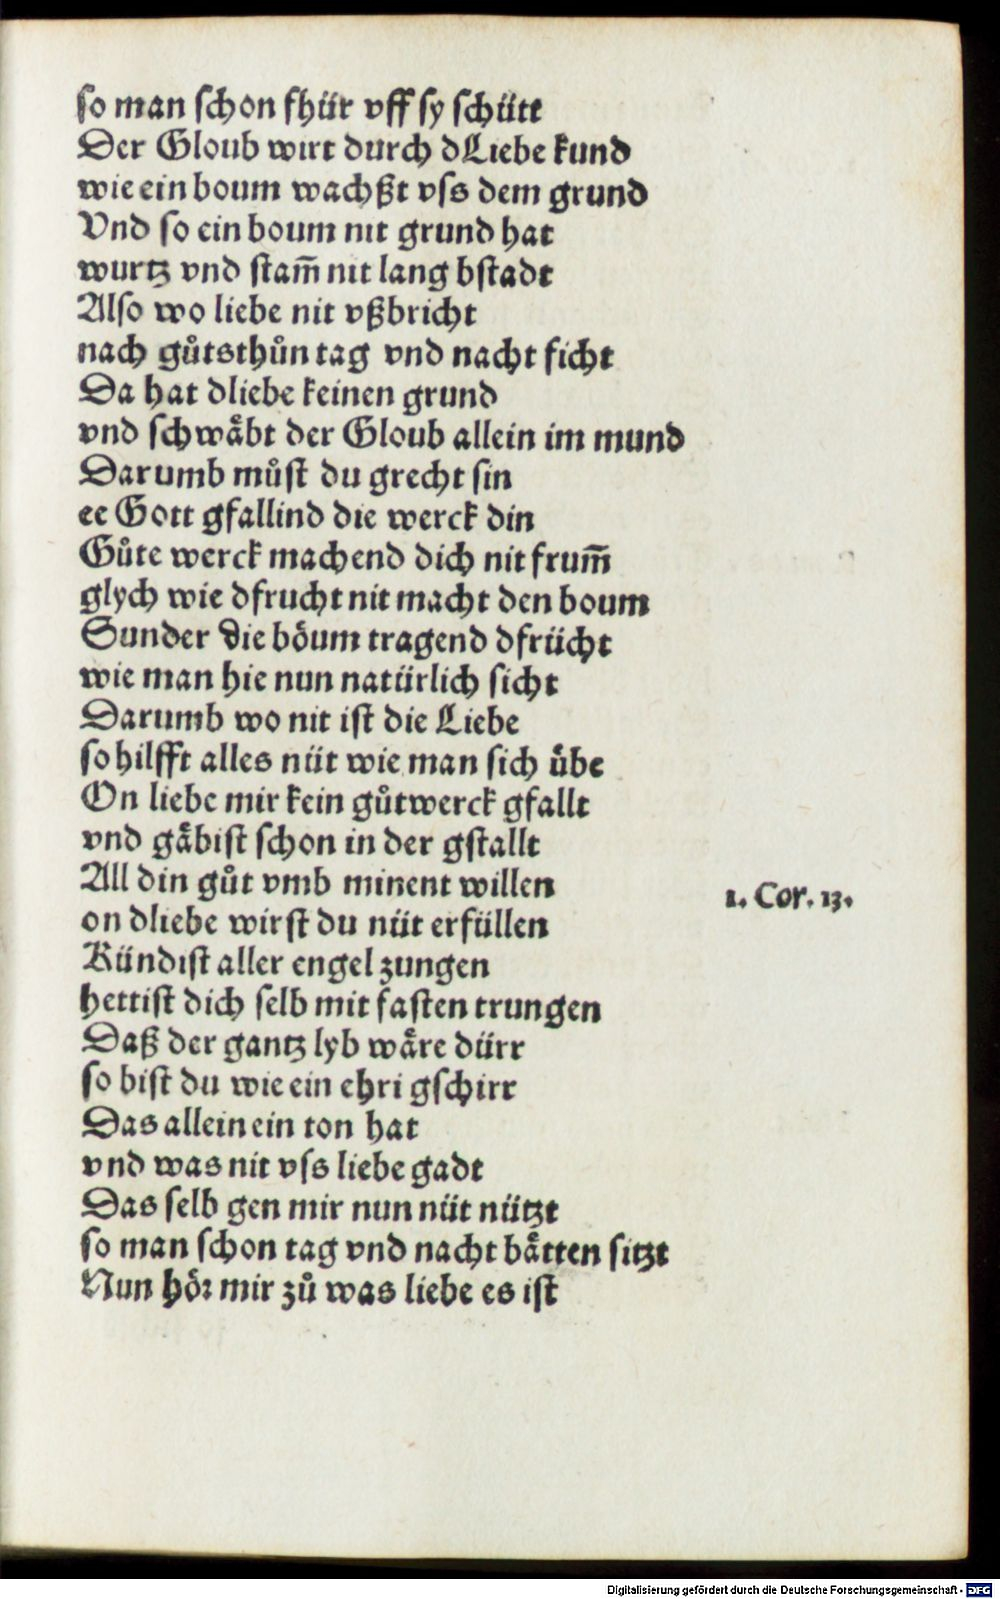 so man schon fhür vff sy schütt
Der Gloub wirt durch dLiebe kund
wie ein boum wachßt vss dem grund
Vnd so ein boum nit grund hat
wurtz vnd stam̄ nit lang bstadt
Also wo liebe nit vßbricht
nach gůtsthůn tag vnd nacht ficht
Da hat dliebe keinen grund
vnd schwåbt der Gloub allein im mund
Darumb můst du grecht sin
ee Gott gfallind die werck din
Gůte werck machend dich nit frum̄
glych wie dfrucht nit macht den boum
Sunder die böum tragend dfrücht
wie man hie nun natürlich sicht
Darumb wo nit ist die Liebe
so hilfft alles nüt wie man sich ůbe
On liebe mir kein gůtwerck gfallt
vnd gåbist schon in der gstallt
All din gůt vmb minent willen
1. Cor. 13.
on dliebe wirst du nüt erfüllen
Kündist aller engel zungen
hettist dich selb mit fasten trungen
Daß der gantz lyb wåre dürr
so bist du wie ein ehri gschirr
Das allein ein ton hat
vnd was nit vss liebe gadt
Das selb gen mir nun nüt nützt
so man schon tag vnd nacht båtten sitzt
Nun hör mir zů was liebe es ist
Digitalisierung gefördert durch die Deutsche Forschungsgemeinschaft - DFG